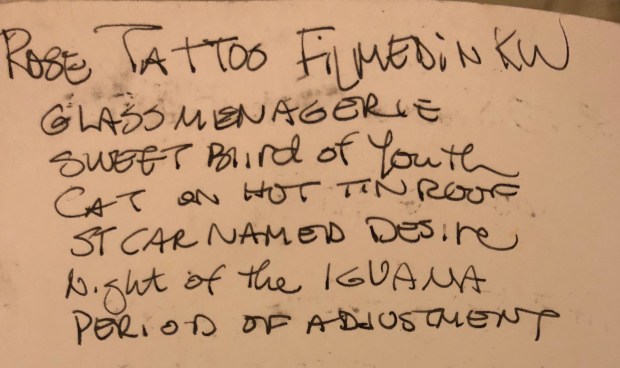 ROSE TATTOO FILMED iN KW
GLASS MENAGERIE
SWEET Biird of Youth
CAT ON HOT TIN ROOF
ST CAR NAMED DESire
Night of the IGUANA
PERIOD OF ADJUSTMENT